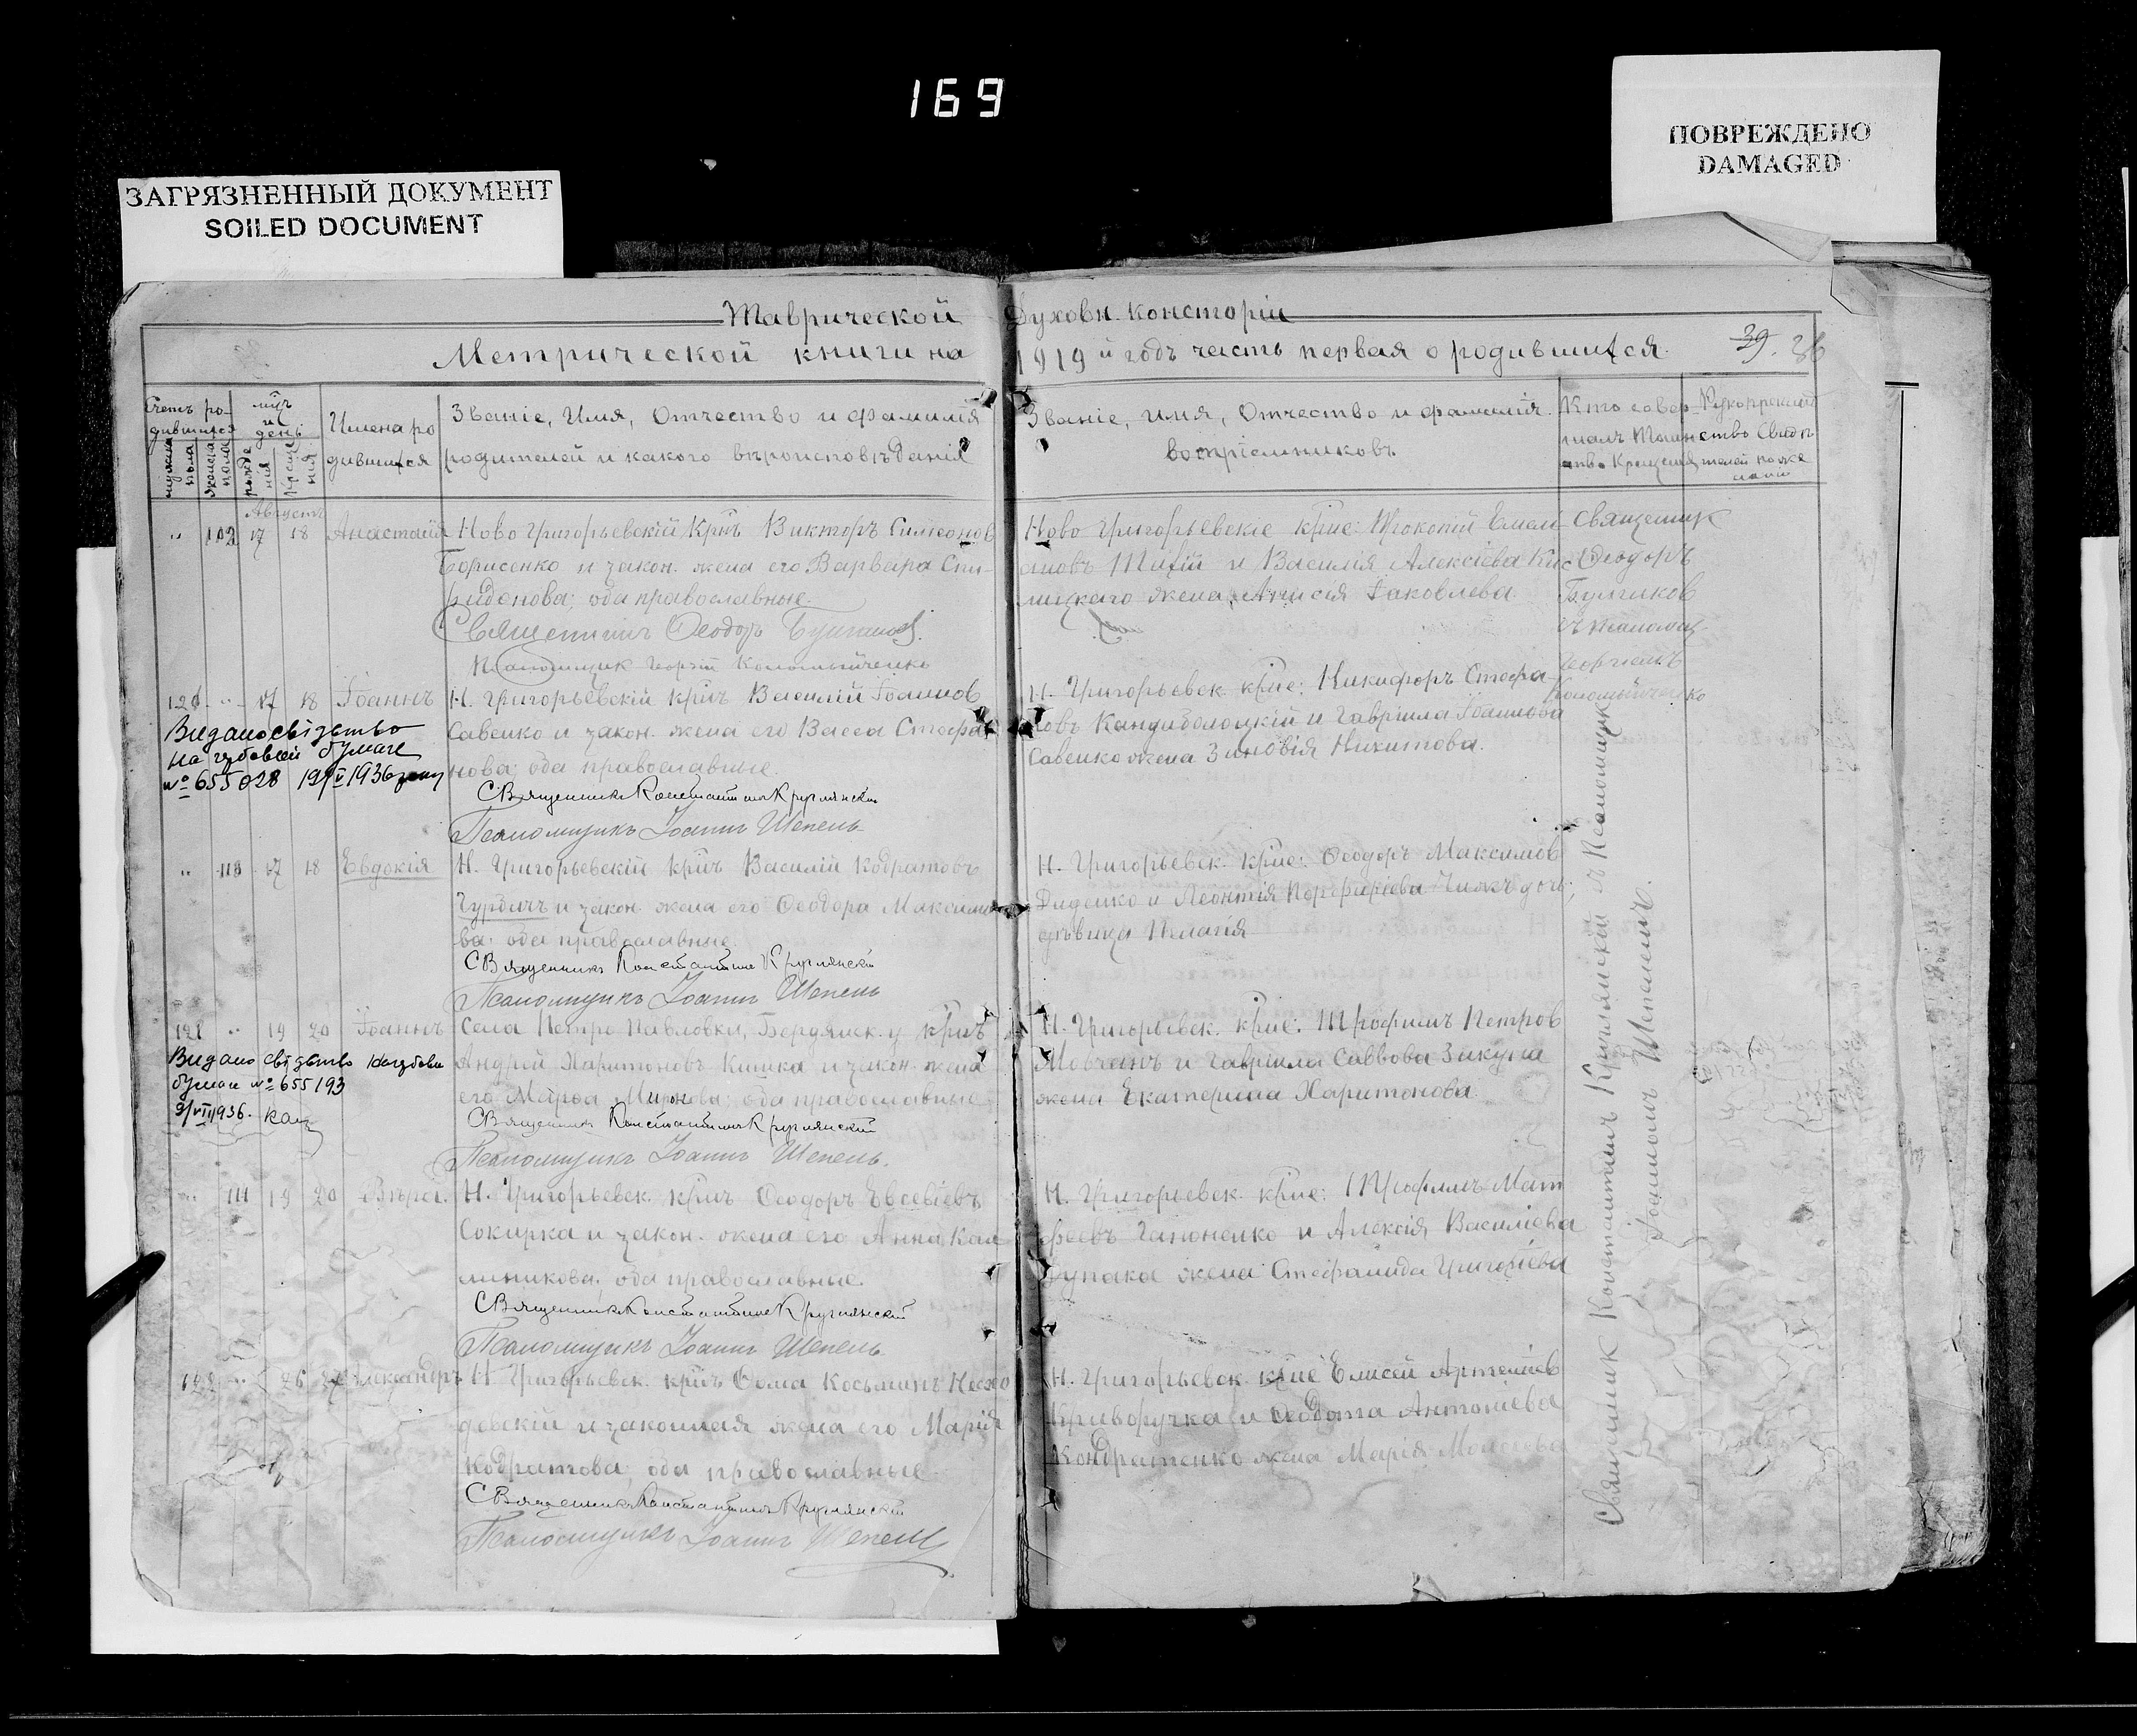 169
ПОВРЕЖДЕНО
DAMAGED
ЗАГРЯЗНЕННЫЙ ДОКУМЕНТ
SOILED DOCUMENT
Таврической Духовн. консторіи
Метрической книги на 1919й годъ часть первая о родившихся.
39. 36
Счетъ родившихся
мужска пола
женска пола
мцъ и день
рожденія
крещенія
Имена родившихся
Званіе, Имя, Отчество и фамилія
родителей и какого вѣроисповѣданія
Званіе, имя, Отчество и фамилія
воспріемниковъ
Кто совершалъ Таинство Крещенія
Рукоприкладство Свидѣтелей по желанію
Августъ
" 102 17 18 Анастасія
Ново Григорьевскій крнъ Викторъ Симеонов
Борисенко и закон. жена его Варвара Спи-
ридонова; оба православные.
Священникъ Ѳеодоръ
Псаломщик Георгій Коломыйченко
Ново Григорьевскіе крне: Прокопій Емели-
ановъ и Василія Алексіева Кис
лицкаго жена Анисія Іаковлева
Священник
Ѳеодоръ
Булгиков
съ псаломщ.
Георгіемъ
Коломыйченко
120 " 17 18 Іоаннъ
Н. Григорьевскій крнъ Василій Іоаннов
Савенко и закон. жена его Васса Стефа
нова; оба православные.
Священникъ Константинъ Круглянскій
Псаломщикъ Іоаннъ Шепель
Видано свідетво
на гербовій бумаге
№ 655028 19/V 1936
Н. Григорьевск. крне: Никифоръ Стефа-
новъ и Гавріила Іоаннова
Савенко жена Зиновія Никитова.
" 113 17 18 Евдокія
Н. Григорьевскій крнъ Василій Кодратовъ
Гурбичъ и закон. жена его Ѳеодора Максимо
ва; оба православные.
Священникъ Константинъ Круглянскій
Псаломщикъ Іоаннъ Шепель
Н. Григорьевск. крне: Ѳеодоръ Максимов
Диденко и Леонтія Порфиріева Чижъ дочь,
дѣвица Пелагія
121 " 19 20 Іоаннъ
Села Петро Павловки, Бердянск. у. крнъ
Андрей Харитоновъ Кишка и закон. жена
его Марѳа Миронова; оба православные
Священникъ Константинъ Круглянскій
Псаломщикъ Іоаннъ Шепель.
Видано свідетво
бумаге № 655193
9/VII 1936.
Н. Григорьевск. крне: Трофимъ Петров
Мовчанъ и Гавріила Саввова Зикуна
жена Екатерина Харитонова.
" 114 19 20 Вѣра
Н. Григорьевск. крнъ Ѳеодоръ Евсевіевъ
Сокирка и закон. жена его Анна Кал
линикова; оба православные.
Священникъ Константинъ Круглянскій
Псаломщикъ Іоаннъ Шепель
Н. Григорьевск. крне: Трофимъ Мат
феевъ Гапоненко и Алексія Василіева
жена Стефанида Григоріева
122 " 26 27 Александръ
Н. Григорьевск. крнъ Ѳома Косьминъ
и законная жена его Марія
Кодратова; оба православные.
Священникъ Константинъ Круглянскій
Псаломщикъ Іоаннъ Шепель
Н. Григорьевск. крне Елисей Артеміев
Криворучка и Ѳеодота Антоніева
Кондратенко жена Марія Моисеева
Священник Константинъ Круглянскій и Псаломщик
Іоанномъ Шепелемъ.